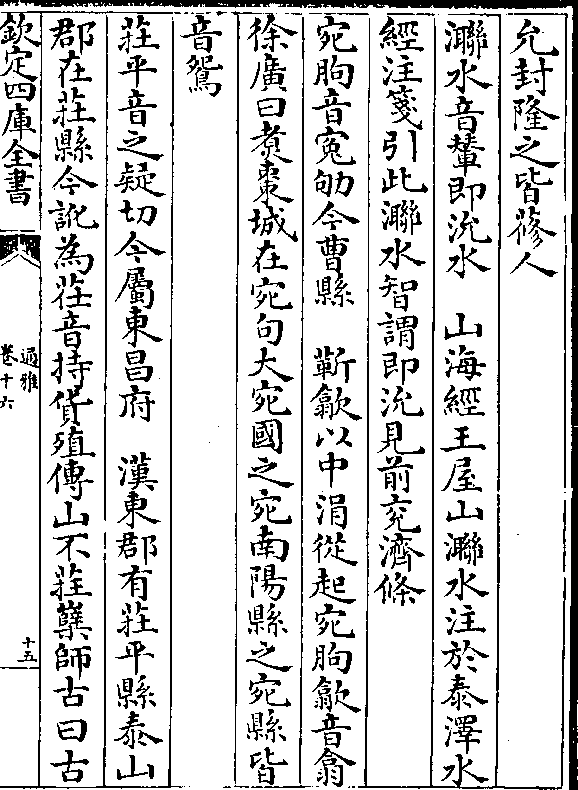 允封隆之皆蓨人
㶌水音輦即沇水　山海經王屋山㶌水注於泰澤水
經注箋引此㶌水智謂即沇見前兗濟條
宛朐音寃劬今曹縣　靳歙以中涓從起宛朐歙音翕
徐廣曰煑棗城在宛句大宛國之宛南陽縣之宛縣皆
音鴛
茌平音之疑切今屬東昌府　漢東郡有茌平縣泰山
郡在茌縣今訛為茌音持貨殖傳山不茌蘖師古曰古
欽定四庫全書
通雅
卷十六
十五